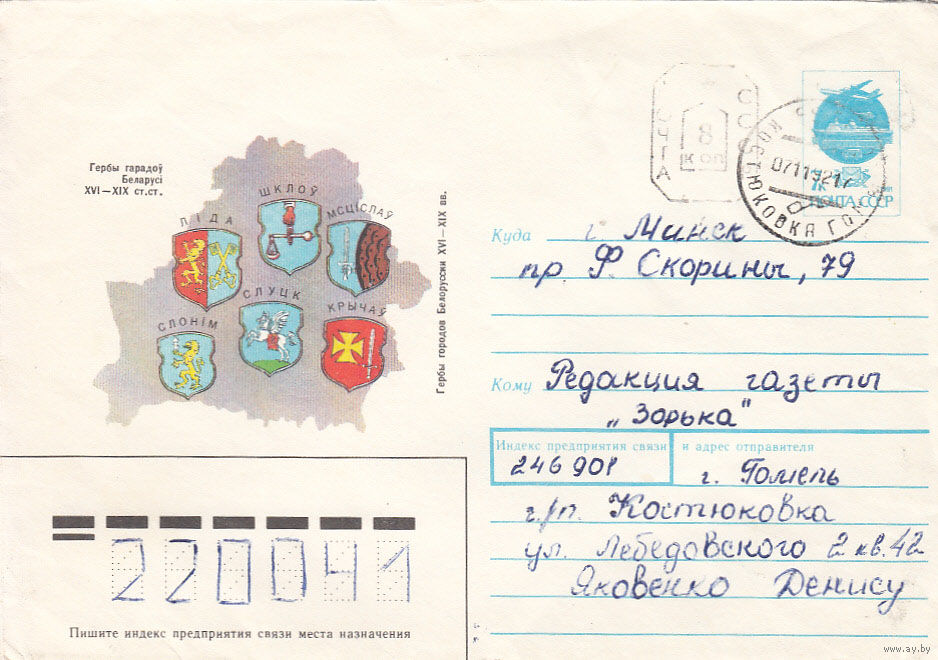 Гербы гарадоў
Беларусі
XVI—XIX ст.ст.
ЛІДА
ШКЛОЎ
МСЦІСЛАЎ
СЛОНІМ
СЛУЦК
КРЫЧАЎ
Гербы городов Белоруссии XVI—XIX вв.
8
коп
07119217
КОСТЮКОВКА ГОМ
ПОЧТА СССР
Куда г. Минск
пр. Ф. Скорины, 79
Кому Редакция газеты
„Зорька"
Индекс предприятия связи и адрес отправителя
246901 г. Гомель
г/п. Костюковка
ул. Лебедовского 2 кв. 42
Яковенко Денису
220041
Пишите индекс предприятия связи места назначения
www.ay.by